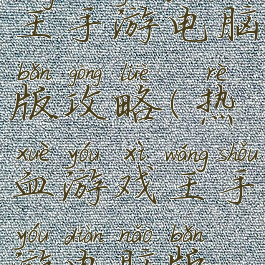 王手游电脑
bǎn gōng lüè rè
版攻略(热
xuè yóu xì wáng shǒu
血游戏王手
yóu diàn nǎo bǎn
游电脑版